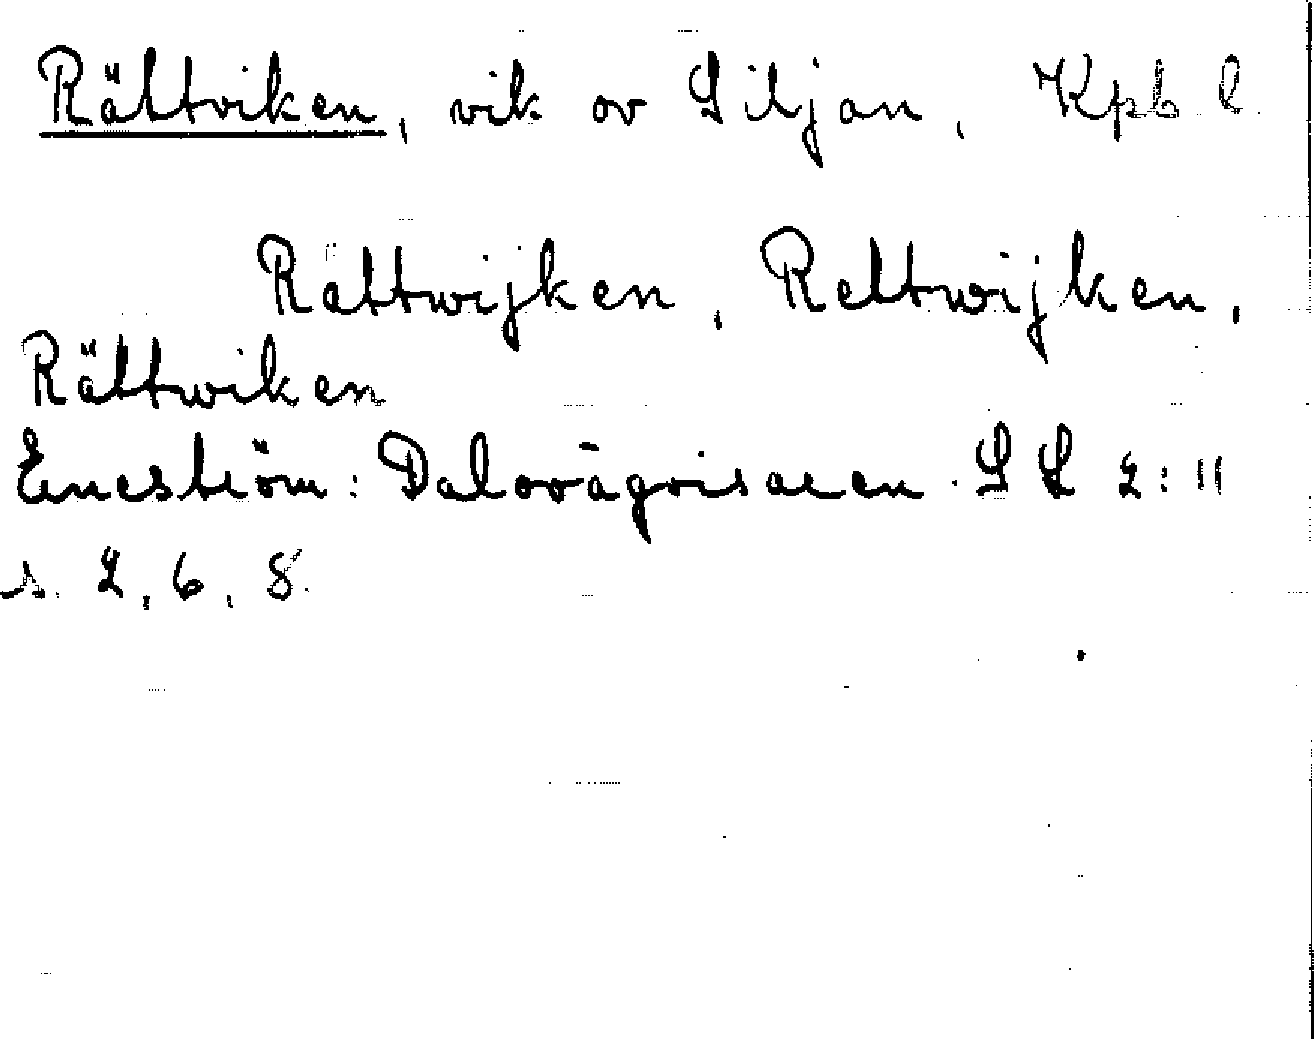 Rättviken, vik av Siljan, Kpb l.
Rättwijken, Rettwijken,
Rättwiken
Eneström: Dalavägvisaren. SL 2:11
s. 2, 6, 8.